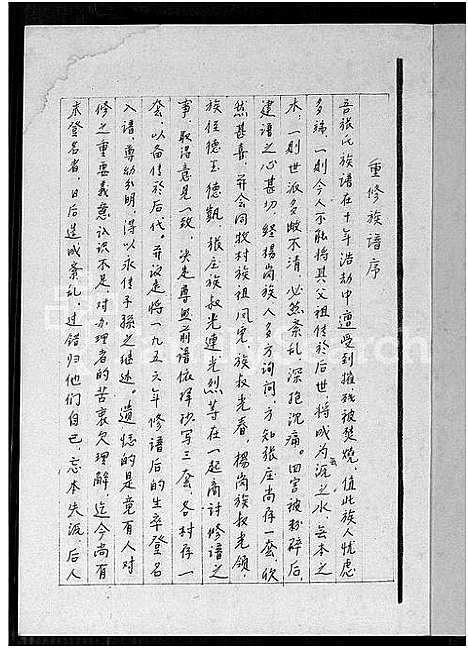 重修族谱序
吾张氏族谱在十年浩劫中遭受到摧残被焚烧，值此族人忧虑
多端，一则今人不能将其父祖传於后世，将成为无源之水，无本之
木；一则世派多败不清，必然紊乱，深抱沉痛。四害被粉碎后，
建谱之心甚切，经杨岗族人多方询问，方知张庄尚存一套，欣
然甚喜，并会同牧村族祖凤宪，族叔光春，杨岗族叔光领，
族侄德玉德凯，张庄族叔光连光烈等在一起商讨修谱之
事，取得意见一致，决定尊照前谱依样抄写三套，各村存一
套，以备传於后代。并议定将一九五六年修谱后的生卒登名
入谱，尊幼分明，得以永传子孙之继述。遗憾的是竟有人对
修之重要义意认识不足，对办理者的苦衷欠理解，迄今尚有
未登名者，日后造成紊乱，过错归他们自己，忘本失源，后人